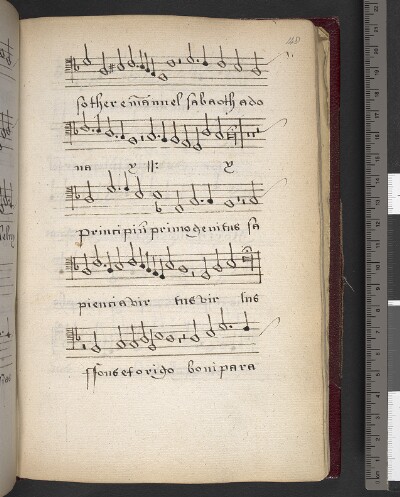 148
sother emānuel sabaoth ado
na y ij: y
principiū primogenitus sa
pientia vir tus vir tus
ffons et origo boni para